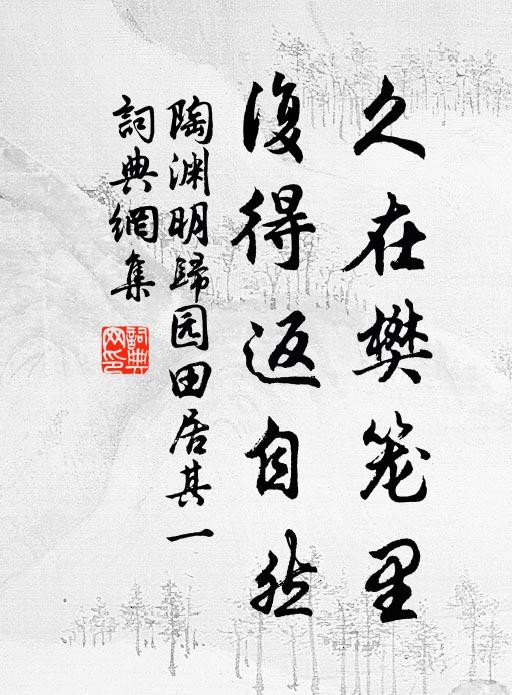 久在樊笼里
復得返自然
陶渊明歸园田居其一
詞典網集
詞典网印